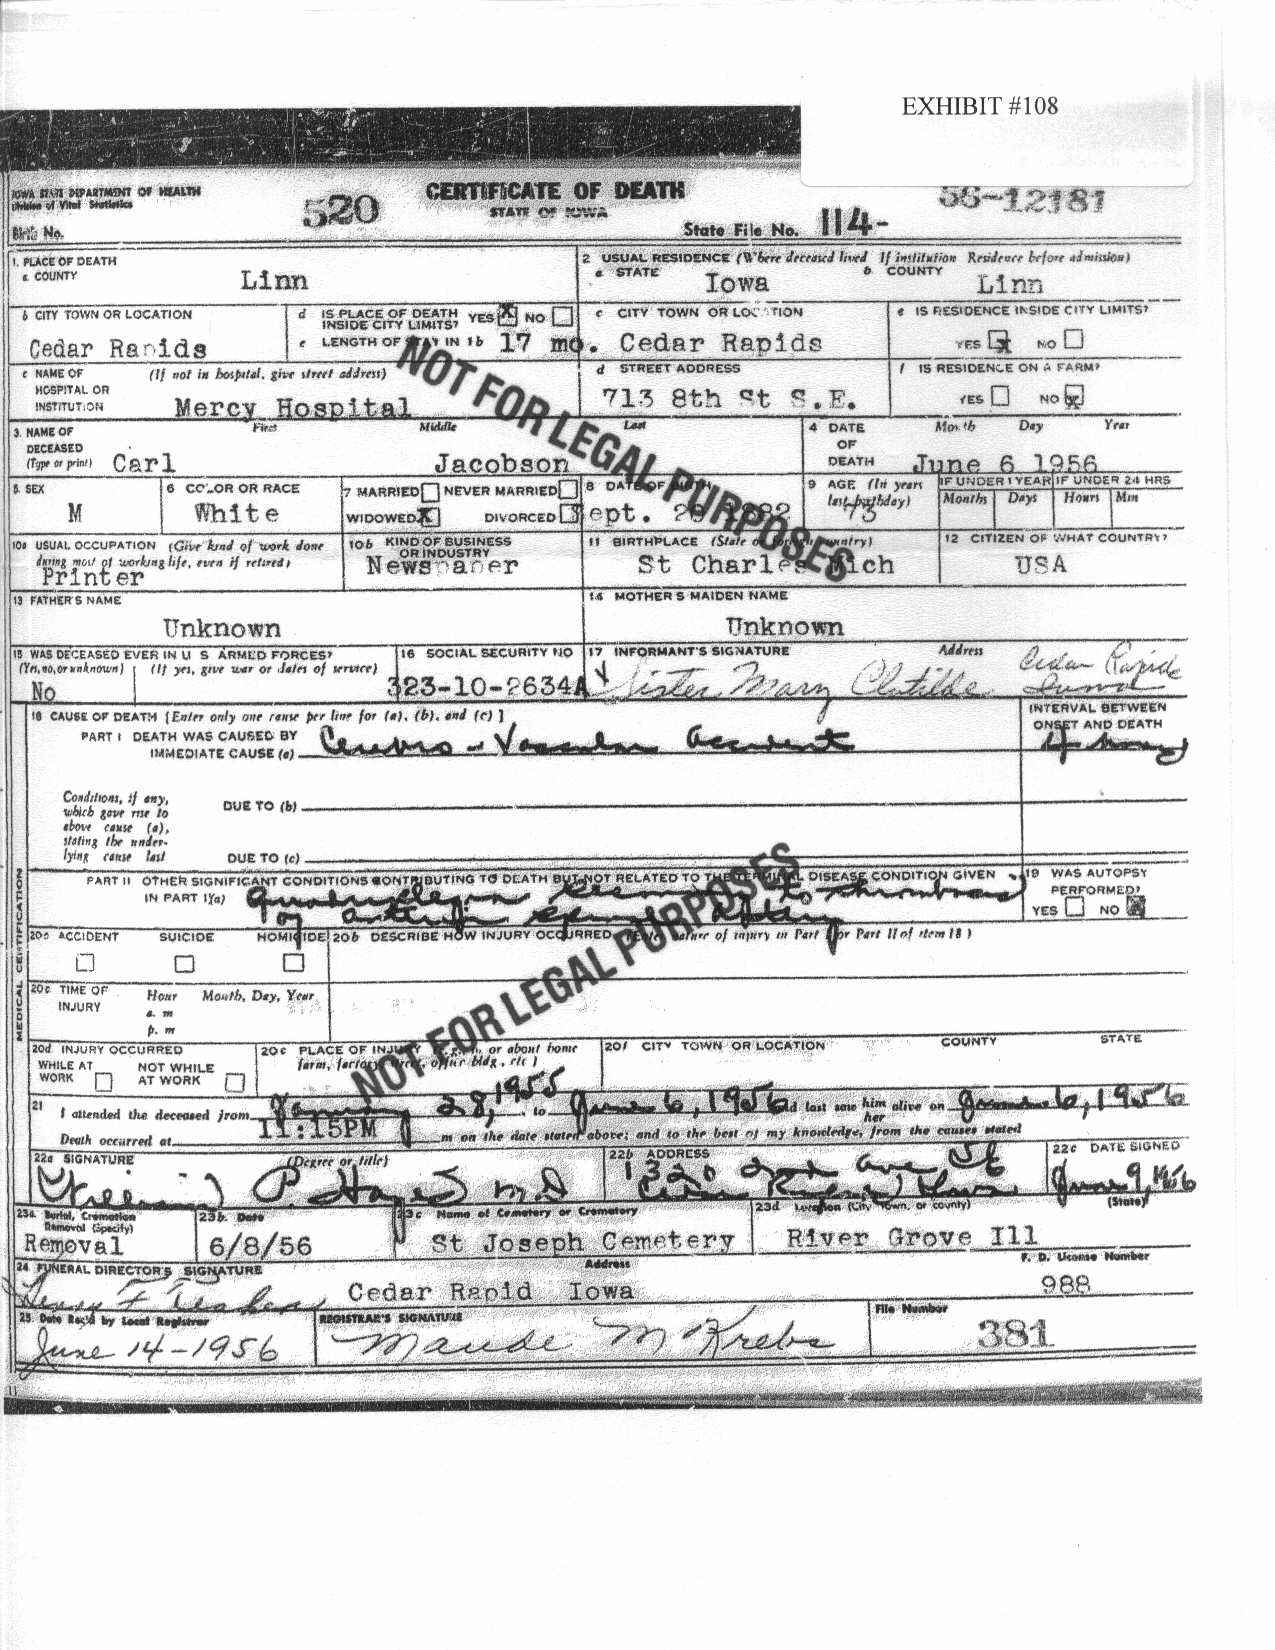 EXHIBIT #108
IOWA STATE DEPARTMENT OF HEALTH
Division of Vital Statistics
Birth No.
520
CERTIFICATE OF DEATH
STATE OF IOWA
State File No. 114-
56-12181
1. PLACE OF DEATH
a. COUNTY
Linn
2 USUAL RESIDENCE (Where deceased lived If institution Residence before admission)
a STATE
Iowa
b COUNTY
Linn
b CITY TOWN OR LOCATION
Cedar Rapids
d IS PLACE OF DEATH INSIDE CITY LIMITS? YES X NO
e LENGTH OF STAY IN 1b 17 mo.
c CITY TOWN OR LOCATION
Cedar Rapids
e IS RESIDENCE INSIDE CITY LIMITS?
YES X NO
c NAME OF HOSPITAL OR INSTITUTION
(If not in hospital, give street address)
Mercy Hospital
d STREET ADDRESS
713 8th St S.E.
f IS RESIDENCE ON A FARM?
YES NO X
3. NAME OF DECEASED
(Type or print)
First Middle Last
Carl Jacobson
4 DATE OF DEATH
Month Day Year
June 6 1956
5. SEX
M
6 COLOR OR RACE
White
7 MARRIED NEVER MARRIED
WIDOWED X DIVORCED
8 DATE OF BIRTH
9 AGE (In years last birthday)
73
IF UNDER 1 YEAR
Months Days
IF UNDER 24 HRS
Hours Min
10a USUAL OCCUPATION (Give kind of work done during most of working life, even if retired)
Printer
10b KIND OF BUSINESS OR INDUSTRY
Newspaper
11 BIRTHPLACE (State or foreign country)
St Charles Mich
12 CITIZEN OF WHAT COUNTRY?
USA
13 FATHER'S NAME
Unknown
14 MOTHER'S MAIDEN NAME
Unknown
15 WAS DECEASED EVER IN U S ARMED FORCES?
(Yes, no, or unknown) (If yes, give war or dates of service)
No
16 SOCIAL SECURITY NO
323-10-2634A
17 INFORMANT'S SIGNATURE Address
Sister Mary Clotilde Cedar Rapids Iowa
18 CAUSE OF DEATH [Enter only one cause per line for (a), (b), and (c)]
PART I DEATH WAS CAUSED BY
IMMEDIATE CAUSE (a) Cerebro-Vascular Accident
INTERVAL BETWEEN ONSET AND DEATH
4 hours
Conditions, if any, which gave rise to above cause (a), stating the underlying cause last
DUE TO (b)
DUE TO (c)
PART II OTHER SIGNIFICANT CONDITIONS CONTRIBUTING TO DEATH BUT NOT RELATED TO THE TERMINAL DISEASE CONDITION GIVEN IN PART I(a)
Quadriplegia secondary to thrombosis
of anterior spinal artery
19 WAS AUTOPSY PERFORMED?
YES NO X
MEDICAL CERTIFICATION
20a ACCIDENT SUICIDE HOMICIDE
20b DESCRIBE HOW INJURY OCCURRED (Enter nature of injury in Part I or Part II of item 18)
20c TIME OF INJURY
Hour Month, Day, Year
a. m
p. m
20d INJURY OCCURRED
WHILE AT WORK NOT WHILE AT WORK
20e PLACE OF INJURY (e.g., in, or about home farm, factory, street, office bldg, etc)
20f CITY TOWN OR LOCATION COUNTY STATE
21 I attended the deceased from January 28, 1955 to June 6, 1956 and last saw him her alive on June 6, 1956
Death occurred at 11:15PM m on the date stated above; and to the best of my knowledge, from the causes stated
22a SIGNATURE (Degree or title)
William P. Hayes M.D
22b ADDRESS
1320 2nd Ave SE
Cedar Rapids Iowa
22c DATE SIGNED
June 9, 1956
23a. Burial, Cremation Removal (Specify)
Removal
23b. Date
6/8/56
23c Name of Cemetery or Crematory
St Joseph Cemetery
23d Location (City Town, or county) (State)
River Grove Ill
24 FUNERAL DIRECTOR'S SIGNATURE Address
Cedar Rapid Iowa
F. D. License Number
988
25. Date Rec'd by Local Registrar
June 14-1956
REGISTRAR'S SIGNATURE
Maude M Krebs
File Number
381
NOT FOR LEGAL PURPOSES
NOT FOR LEGAL PURPOSES